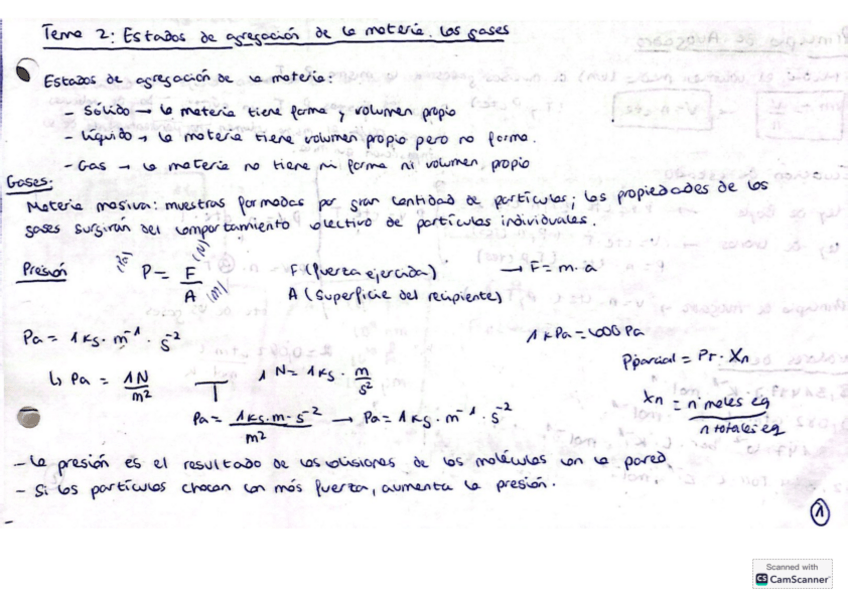 Tema 2: Estados de agregación de la materia. Los gases
Estados de agregación de la materia:
- Sólido → la materia tiene forma y volumen propio
- Líquido → la materia tiene volumen propio pero no forma.
- Gas → la materia no tiene ni forma ni volumen propio
Gases:
Materia masiva: muestras formadas por gran cantidad de partículas; las propiedades de los
gases surgirán del comportamiento colectivo de partículas individuales.
Presión (Pa) P = F (N) / A (m²) F (fuerza ejercida) → F = m · a
A (superficie del recipiente)
Pa = 1 kg · m⁻¹ · s⁻² 1 kPa = 1000 Pa
↳ Pa = 1N / m² 1 N = 1 kg · m / s² Pparcial = PT · Xn
Pa = 1 kg · m · s⁻² / m² → Pa = 1 kg · m⁻¹ · s⁻² Xn = n moles eq / n totales eq
- La presión es el resultado de las colisiones de las moléculas con la pared.
- Si las partículas chocan con más fuerza, aumenta la presión.
1
Scanned with
CS CamScanner